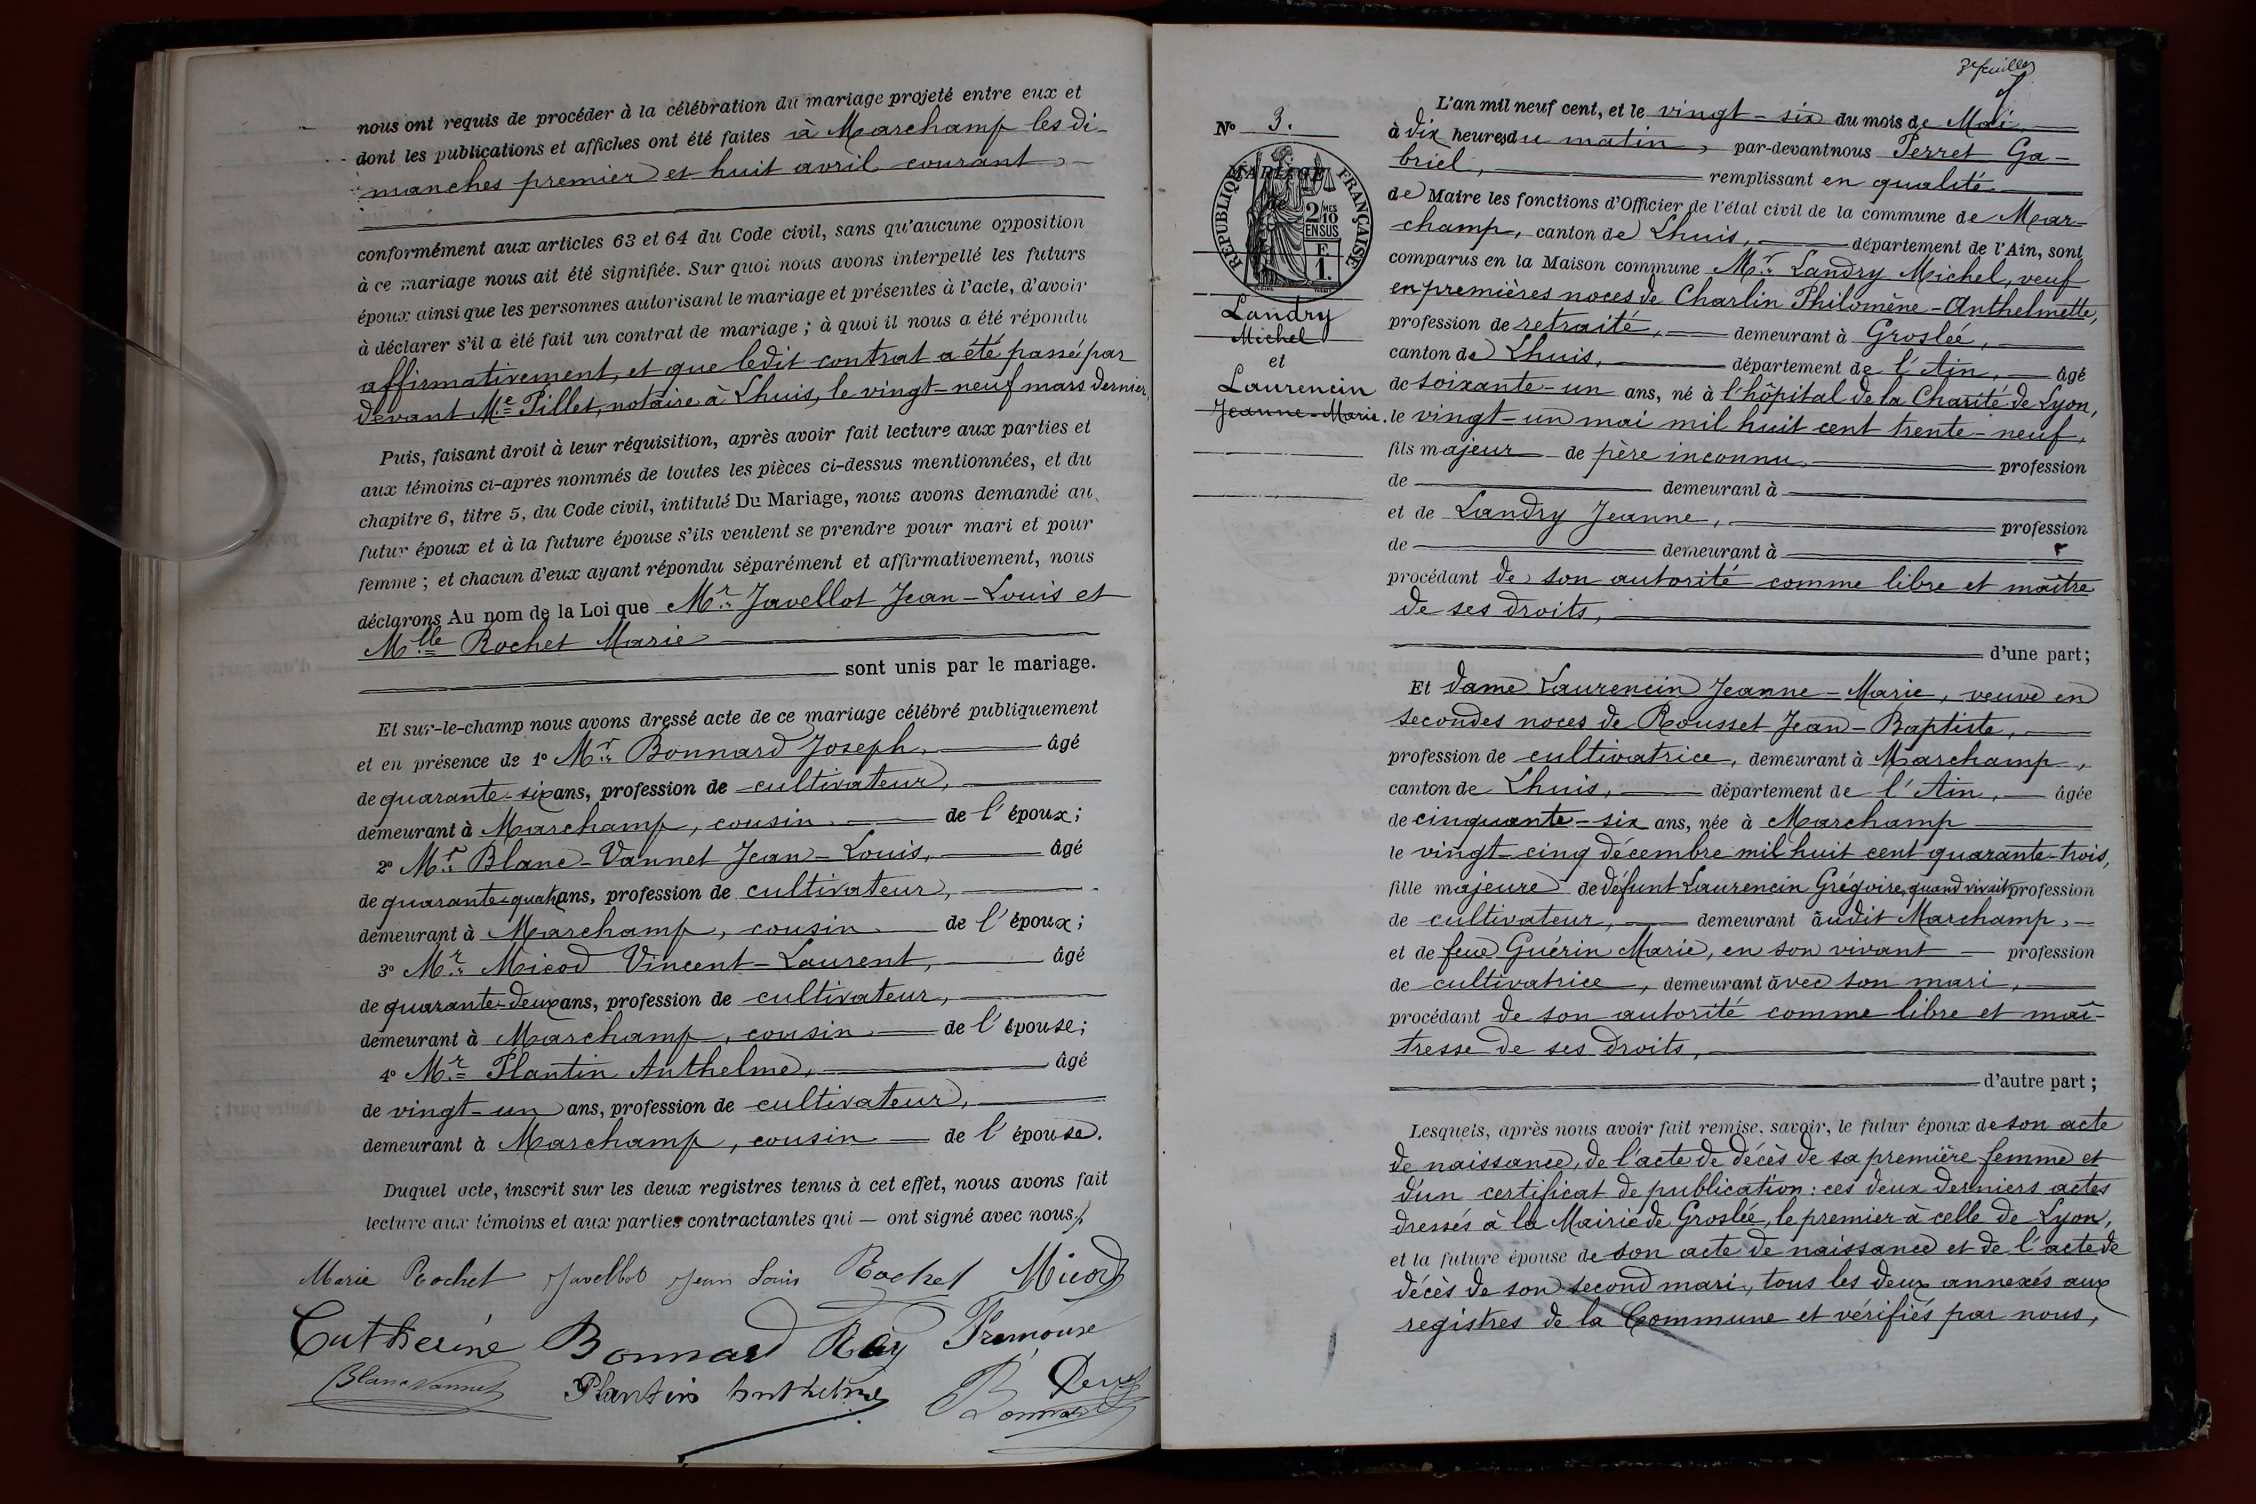 nous ont requis de procéder à la célébration du mariage projeté entre eux et
dont les publications et affiches ont été faites à Marchamp les di-
manches premier et huit avril courant,
conformément aux articles 63 et 64 du Code civil, sans qu'aucune opposition
à ce mariage nous ait été signifiée. Sur quoi nous avons interpellé les futurs
époux ainsi que les personnes autorisant le mariage et présentes à l'acte, d'avoir
à déclarer s'il a été fait un contrat de mariage ; à quoi il nous a été répondu
affirmativement, et que ledit contrat a été passé par
devant Me Pillet, notaire à Lhuis, le vingt-neuf mars dernier.
Puis, faisant droit à leur réquisition, après avoir fait lecture aux parties et
aux témoins ci-après nommés de toutes les pièces ci-dessus mentionnées, et du
chapitre 6, titre 5, du Code civil, intitulé Du Mariage, nous avons demandé au
futur époux et à la future épouse s'ils veulent se prendre pour mari et pour
femme ; et chacun d'eux ayant répondu séparément et affirmativement, nous
déclarons Au nom de la Loi que Mr Javellot Jean-Louis et
Mlle Rochet Marie
sont unis par le mariage.
Et sur-le-champ nous avons dressé acte de ce mariage célébré publiquement
et en présence de 1° Mr Bonnard Joseph, âgé
de quarante-six ans, profession de cultivateur,
demeurant à Marchamp, cousin de l'époux;
2° Mr Blanc-Vannet Jean-Louis, âgé
de quarante-quatre ans, profession de cultivateur,
demeurant à Marchamp, cousin de l'époux;
3° Mr Micod Vincent-Laurent, âgé
de quarante-deux ans, profession de cultivateur,
demeurant à Marchamp, cousin de l'épouse;
4° Mr Plantin Anthelme, âgé
de vingt-un ans, profession de cultivateur,
demeurant à Marchamp, cousin de l'épouse.
Duquel acte, inscrit sur les deux registres tenus à cet effet, nous avons fait
lecture aux témoins et aux parties contractantes qui ont signé avec nous.
Marie Rochet Javellot Jean Louis Rochet Micod
Catherine Bonnard Ray
BlancVannet Plantin Anthelme
3e feuillet
No 3.
MARIAGE
de
RÉPUBLIQUE FRANÇAISE
2/10 MES
EN SUS
F
1.
Landry
Michel
et
Laurencin
Jeanne-Marie.
L'an mil neuf cent, et le vingt-six du mois de Mai
à dix heures du matin, par-devant nous Perret Ga-
briel, remplissant en qualité
de Maire les fonctions d'Officier de l'état civil de la commune de Mar-
champ, canton de Lhuis, département de l'Ain, sont
comparus en la Maison commune Mr Landry Michel, veuf
en premières noces de Charlin Philomène-Anthelmette,
profession de retraité, demeurant à Groslée,
canton de Lhuis, département de l'Ain, âgé
de soixante-un ans, né à l'hôpital de la Charité de Lyon,
le vingt-un mai mil huit cent trente-neuf,
fils majeur de père inconnu, profession
de demeurant à
et de Landry Jeanne, profession
de demeurant à
procédant de son autorité comme libre et maître
de ses droits,
d'une part;
Et dame Laurencin Jeanne-Marie, veuve en
secondes noces de Rousset Jean-Baptiste,
profession de cultivatrice, demeurant à Marchamp,
canton de Lhuis, département de l'Ain, âgée
de cinquante-six ans, née à Marchamp
le vingt-cinq décembre mil huit cent quarante-trois,
fille majeure de défunt Laurencin Grégoire, quand vivait profession
de cultivateur, demeurant audit Marchamp,
et de feue Guérin Marie, en son vivant profession
de cultivatrice, demeurant avec son mari,
procédant de son autorité comme libre et maî-
tresse de ses droits,
d'autre part ;
Lesquels, après nous avoir fait remise, savoir, le futur époux de son acte
de naissance, de l'acte de décès de sa première femme et
d'un certificat de publication : ces deux derniers actes
dressés à la Mairie de Groslée, le premier à celle de Lyon,
et la future épouse de son acte de naissance et de l'acte de
décès de son second mari, tous les deux annexés aux
registres de la Commune et vérifiés par nous,